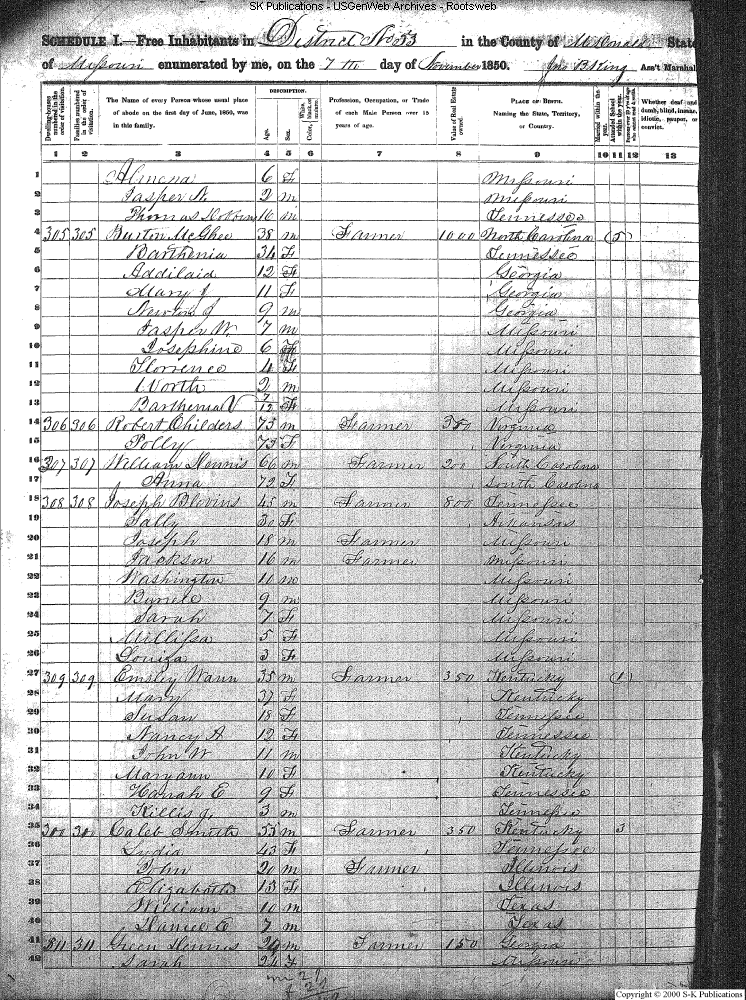 SK Publications - USGenWeb Archives - Rootsweb
SCHEDULE I.—Free Inhabitants in District No 53 in the County of McDonald State
of Missouri enumerated by me, on the 7th day of November 1850. Jno B King Ass't Marshal
Dwelling-houses numbered in the order of visitation. Families numbered in the order of visitation. The Name of every Person whose usual place of abode on the first day of June, 1850, was in this family. DESCRIPTION. Age. Sex. Color, White, black, or mulatto. Profession, Occupation, or Trade of each Male Person over 15 years of age. Value of Real Estate owned. PLACE OF BIRTH. Naming the State, Territory, or Country. Married within the year. Attended School within the year. Whether deaf and dumb, blind, insane, idiotic, pauper, or convict.
1 2 3 4 5 6 7 8 9 10 11 12 13
1 Almena 6 F Missouri
2 Jasper N. 2 m Missouri
3 Thomas 16 m Tennessee
4 305 305 Burton McGhee 38 m Farmer 1000 North Carolina (5)
5 Barthenia 34 F Tennessee
6 Addilaid 12 F Georgia
7 Mary J 11 F Georgia
8 Newton J 9 m Georgia
9 Jasper W 7 m Missouri
10 Josephine 6 F Missouri
11 Florrence 4 F Missouri
12 Worth 2 m Missouri
13 Barthenia V 7/12 F Missouri
14 306 306 Robert Childers 75 m Farmer 350 Virginia
15 Polly 75 F Virginia
16 307 307 William 66 m Farmer 200 South Carolina
17 Anna 72 F South Carolina
18 308 308 Joseph Blevins 45 m Farmer 800 Tennessee
19 Sally 30 F Arkansas
20 Joseph 18 m Farmer Missouri
21 Jackson 16 m Farmer Missouri
22 Washington 10 m Missouri
23 9 m Missouri
24 Sarah 7 F Missouri
25 Millissa 5 F Missouri
26 Louiza 3 F Missouri
27 309 309 Emsley Wann 35 m Farmer 350 Kentucky (1)
28 Mary 37 F Kentucky
29 Susan 18 F Tennessee
30 Nancy A 12 F Tennessee
31 John W 11 m Kentucky
32 Maryann 10 F Kentucky
33 Hanah E 9 F Tennessee
34 Killis J. 3 m Tennessee
35 300 300 Caleb Smith 55 m Farmer 350 Kentucky 3
36 Lydia 43 F Tennessee
37 John 20 m Farmer Illinois
38 Elizabeth 13 F Illinois
39 William 10 m Texas
40 E 7 m Texas
41 311 311 Green 29 m Farmer 150 Georgia
42 Sarah 24 F Missouri
Copyright © 2000 S-K Publications